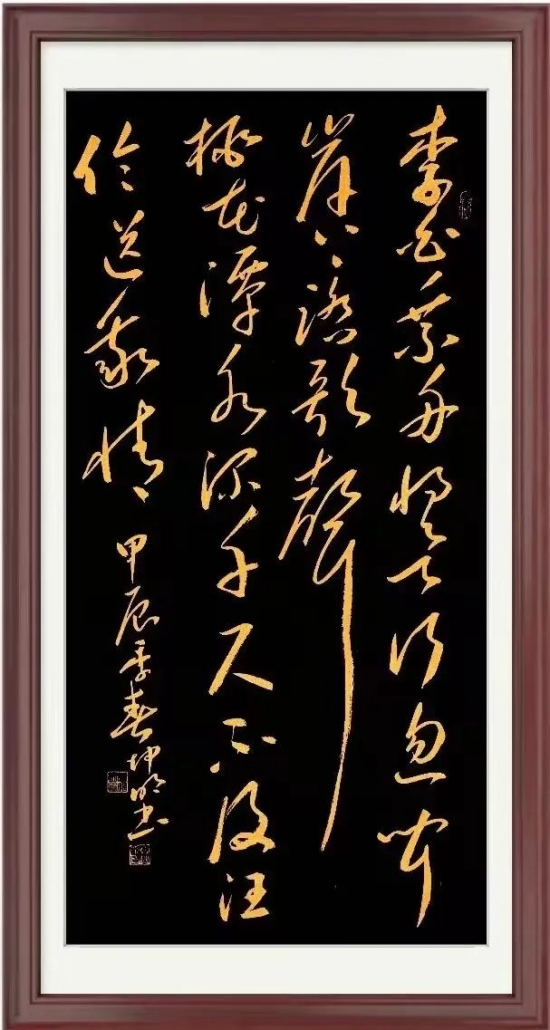 李白乘舟将欲行忽闻
岸上踏歌聲
桃花潭水深千尺不及汪
伦送我情
甲辰季春坤明书